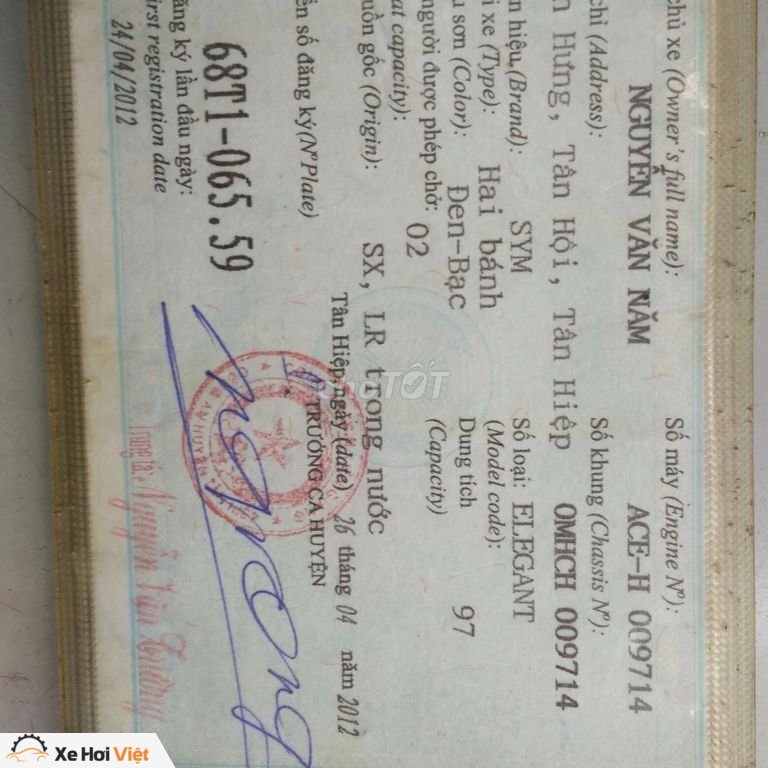 chủ xe (Owner's full name):
NGUYỄN VĂN NĂM
chỉ (Address):
n Hưng, Tân Hội, Tân Hiệp
n hiệu (Brand): SYM
i xe (Type): Hai bánh
u sơn (Color): Đen-Bạc
người được phép chở: 02
at capacity):
uồn gốc (Origin): SX, LR trong nước
Số máy (Engine Nº):
ACE-H 009714
Số khung (Chassis Nº):
OMHCH 009714
Số loại: ELEGANT
(Model code):
Dung tích 97
(Capacity)
Tân Hiệp, ngày (date) 26 tháng 04 năm 2012
TRƯỞNG CA HUYỆN
ển số đăng ký (Nº Plate)
68T1-065.59
ăng ký lần đầu ngày:
irst registration date
24/04/2012
Nguyễn Văn Trường
TỐT
Xe Hơi Việt